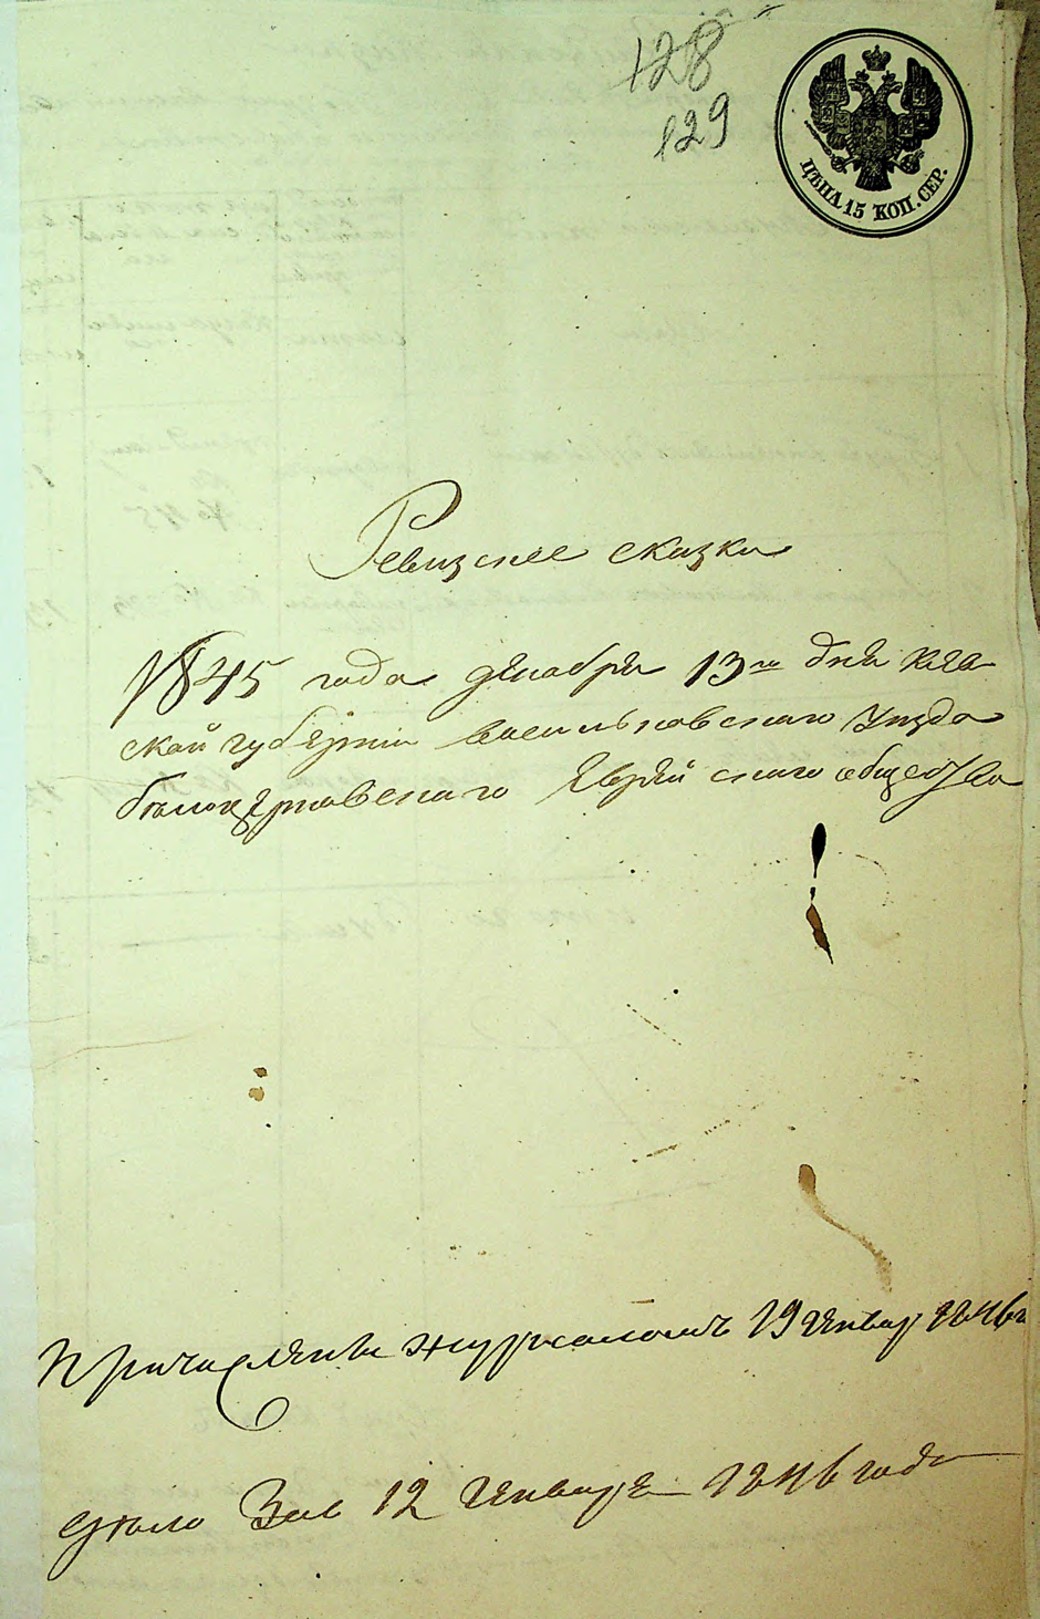 128
129
ЦѢНА 15 КОП. СЕР.
Ревизские сказки
1845 года декабря 13го дня Киев
ской губернии Васильковского уезда
белоцерковского Еврейского общества
Причислены журналомъ 19 Генвар 1846
дело За 12 Генваря 1846 года